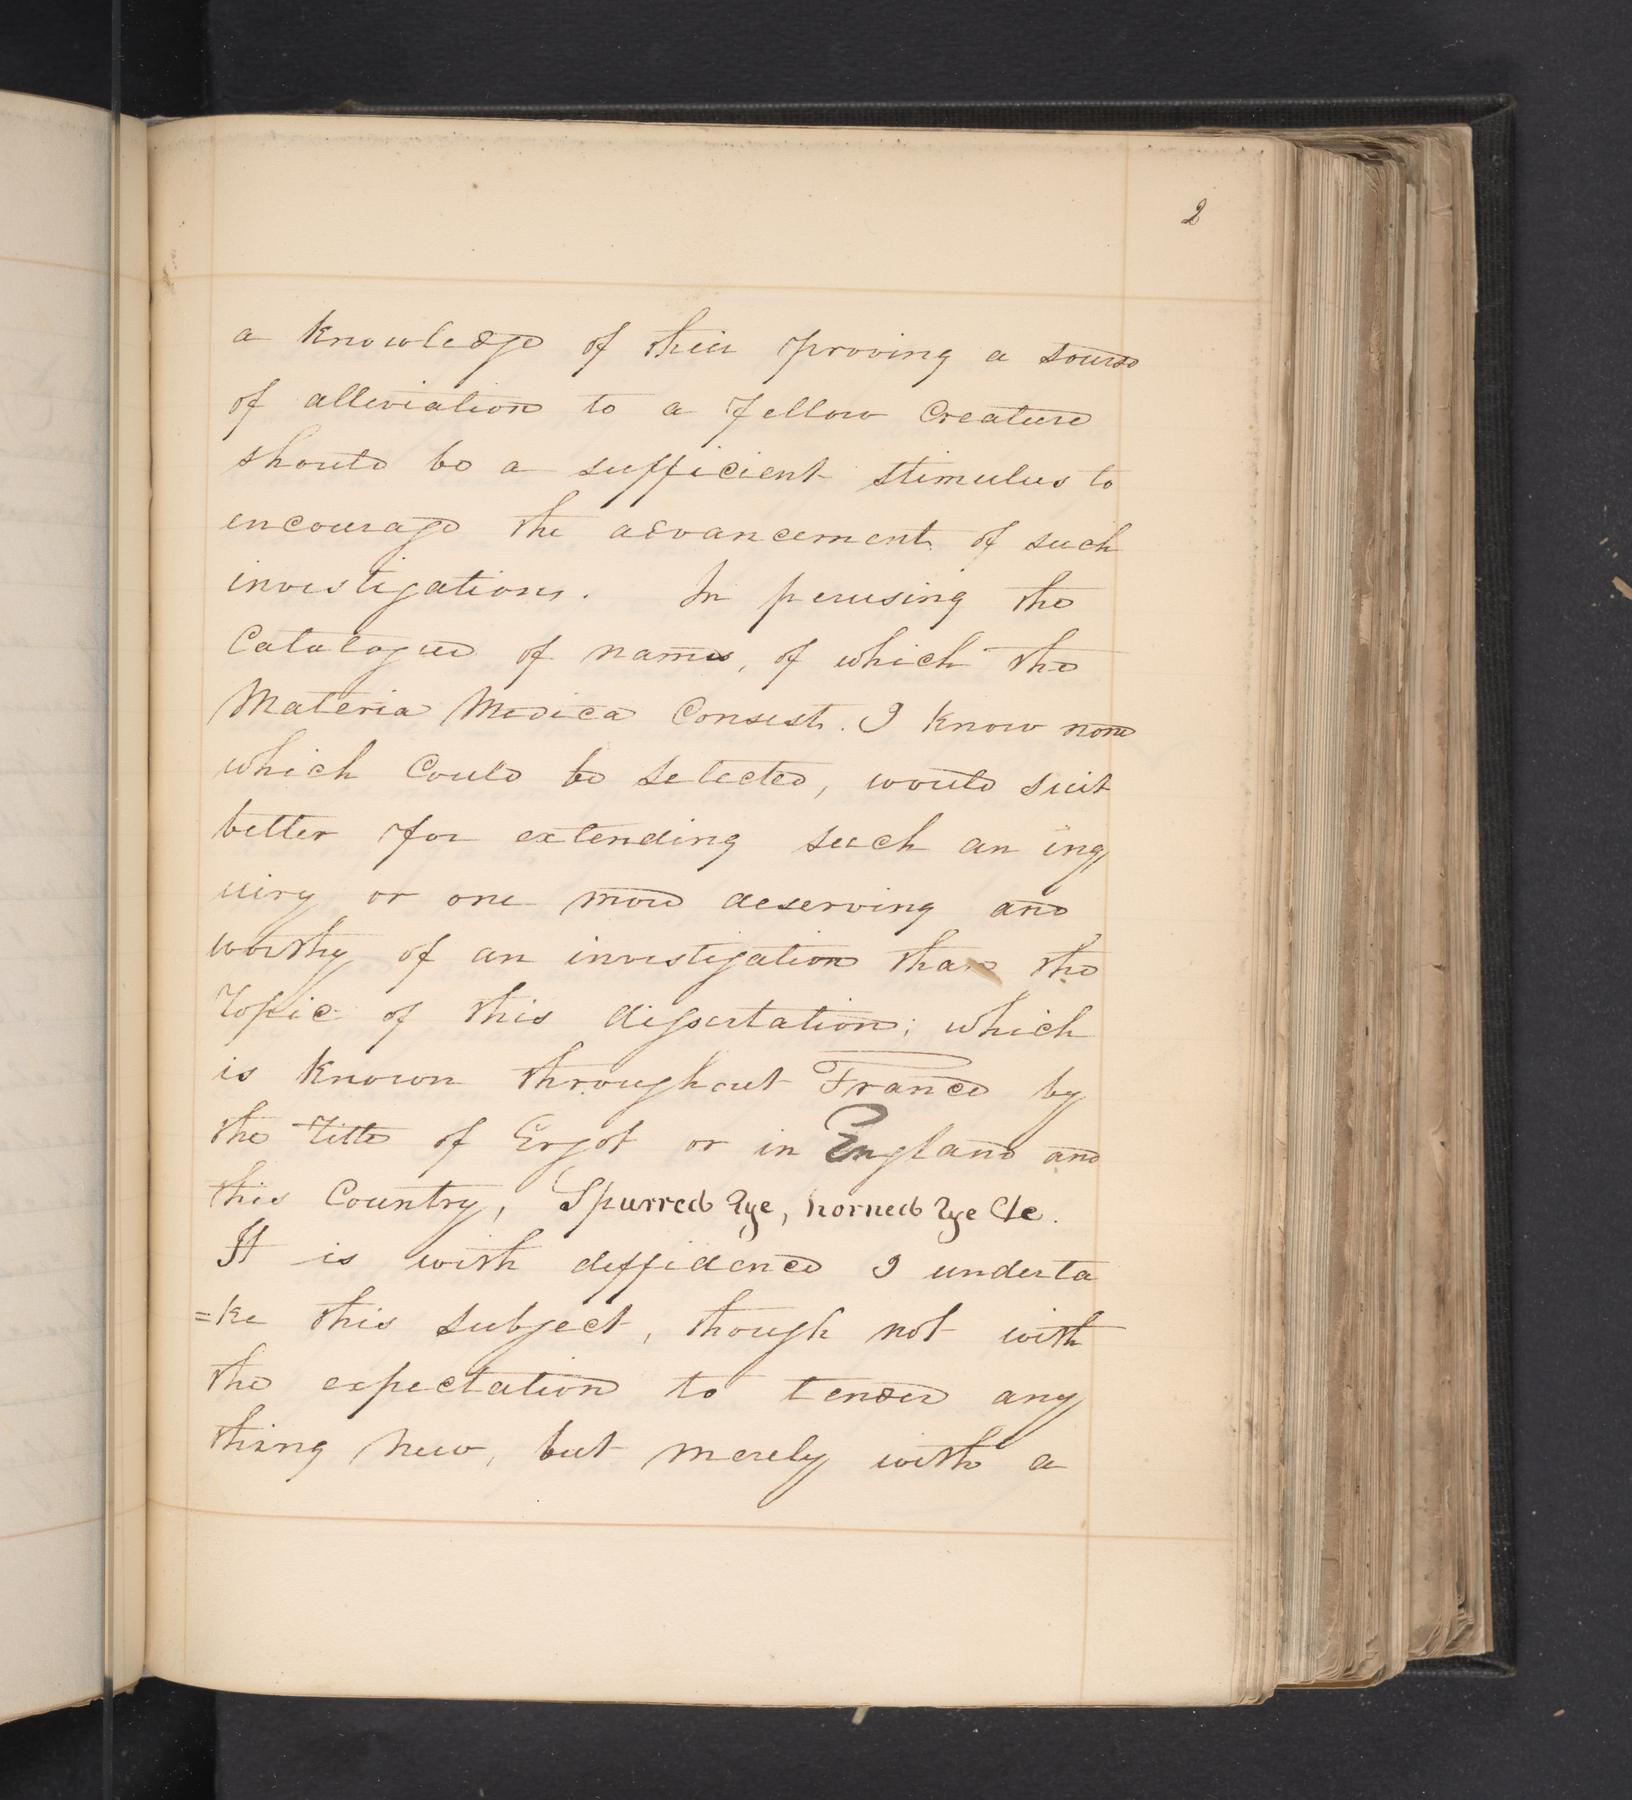 2
a knowledge of their proving a source
of alleviation to a fellow Creature
should be a sufficient stimulus to
encourage the advancement of such
investigations. In perusing the
Catalogue of names, of which the
Materia Medica Consist. I know none
which Could be selected, would suit
better for extending such an inq
uiry or one more deserving and
worthy of an investigation than the
topic of this dissertation; which
is known throughout France by
the title of Ergot or in England and
this Country, Spurred Rye, horned Rye &c.
It is with diffidence I underta
=ke this subject, though not with
the expectation to tender any
thing new, but merely with a